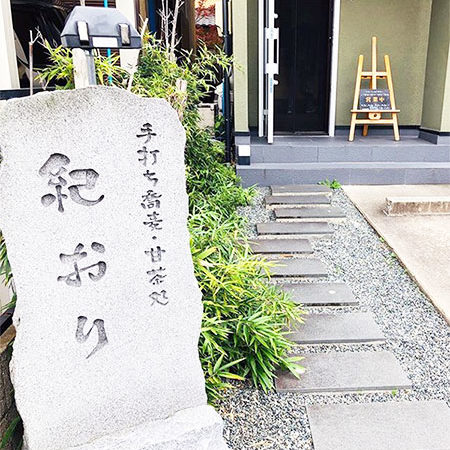 手打ち蕎麦・甘茶処
紀おり
営業中